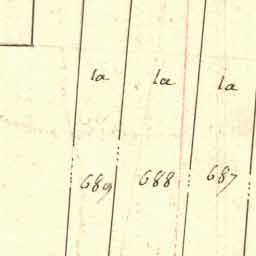 la la la
689 688 687